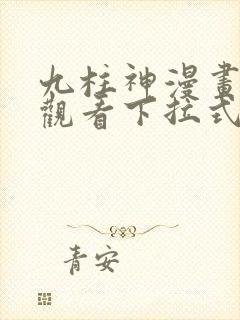 九柱神漫畫
觀看下拉式
青安